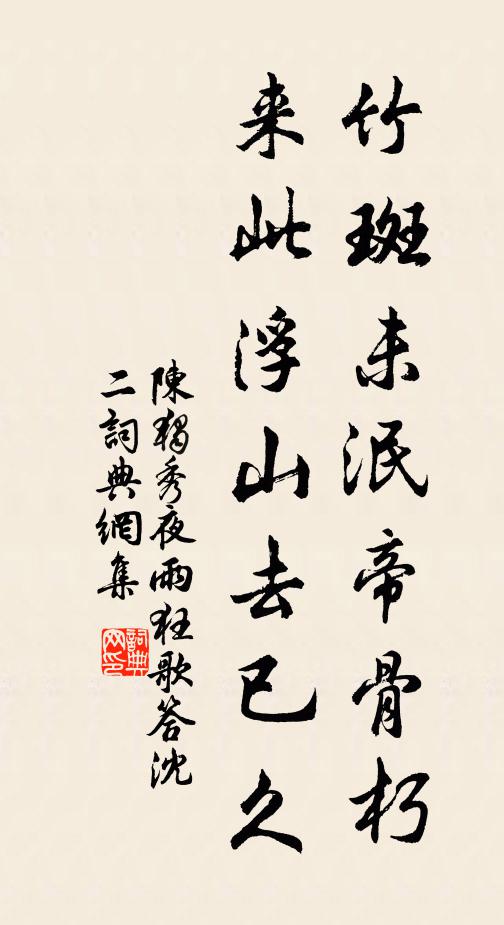 竹斑未泯帝骨朽
来此浮山去已久
陳獨秀夜雨狂歌答沈
二詞典網集
詞典网印